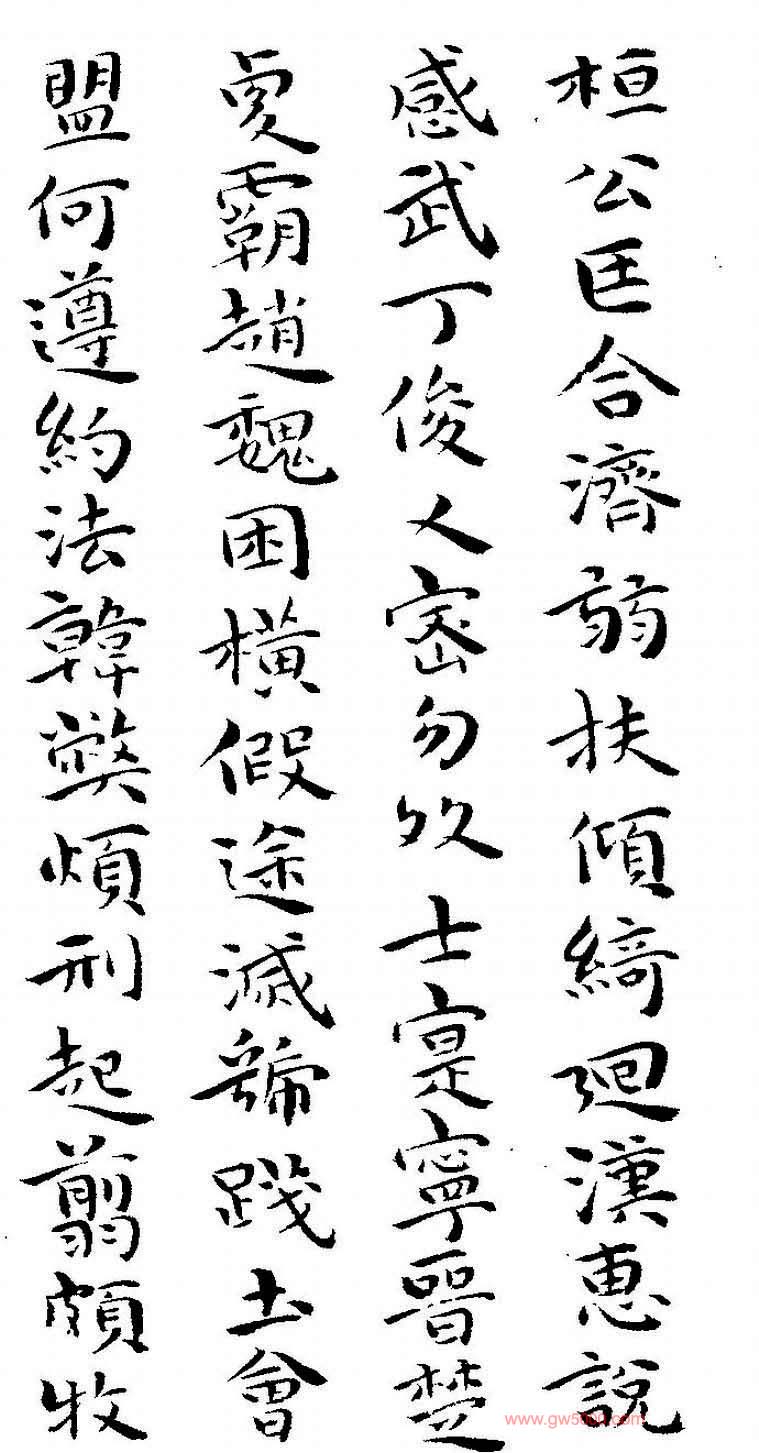 桓公匡合濟弱扶傾綺迴漢惠說
感武丁俊乂密勿多士寔寧晉楚
更霸趙魏困橫假途滅虢踐土會
盟何遵約法韓弊煩刑起翦頗牧